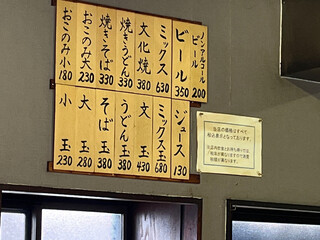 ノンアルコールビール 200
ビール 350
ミックス 630
大化焼 380
焼きうどん 330
焼きそば 330
おこのみ大 230
おこのみ小 180
ジュース 130
ミックス玉 680
文玉 430
うどん玉 380
そば玉 380
大玉 280
小玉 230
当店の価格はすべて
税込表示となっております。